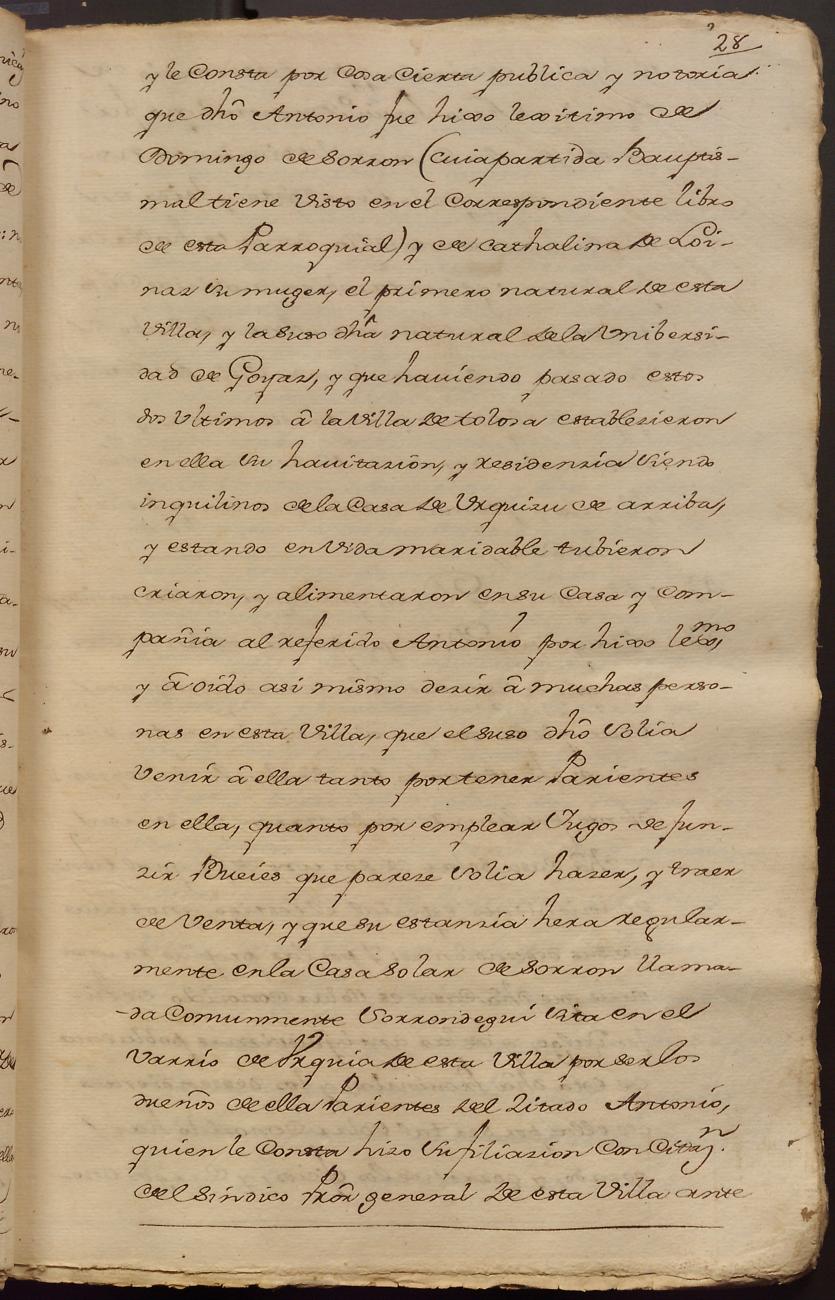 28
y le Consta por Cosa Cierta publica y notoria
que dhô Antonio fue hixo lexitimo de
Domingo de Sorron (cuia partida Bauptis-
mal tiene Visto en el Correspondiente libro
de esta Parroquial) y de Cathalina de Loi-
naz su muger, el primero natural de esta
Villa, y la suso dhâ natural de la Unibersi-
dad de Goyaz, y que haviendo pasado estos
dos Ultimos â la Villa de tolosa establesieron
en ella su havitazion, y residenzia siendo
inquilinos de la Casa de Urquizu de arriba,
y estando en Vida maridable tubieron
criaron, y alimentaron en su Casa y Com-
pañia al referido Antonio por hixo lexmo,
y â oido asi mismo dezir â muchas perso-
nas en esta Villa, que el suso dhô Solia
Venir â ella tanto por tener Parientes
en ella, quanto por emplear Yugos de Jun-
zir Bueies que pareze Solia hazer, y traer
de Venta, y que su estanzia hera regular-
mente en la Casa Solar de Sorron llama-
-da Comunmente Sorrondegui sita en el
Varrio de Urquia de esta Villa por ser los
dueños de ella Parientes del Zitado Antonio,
quien le Consta hizo su filiazion Con Citazn.
del Sindico Prôr general de esta Villa ante